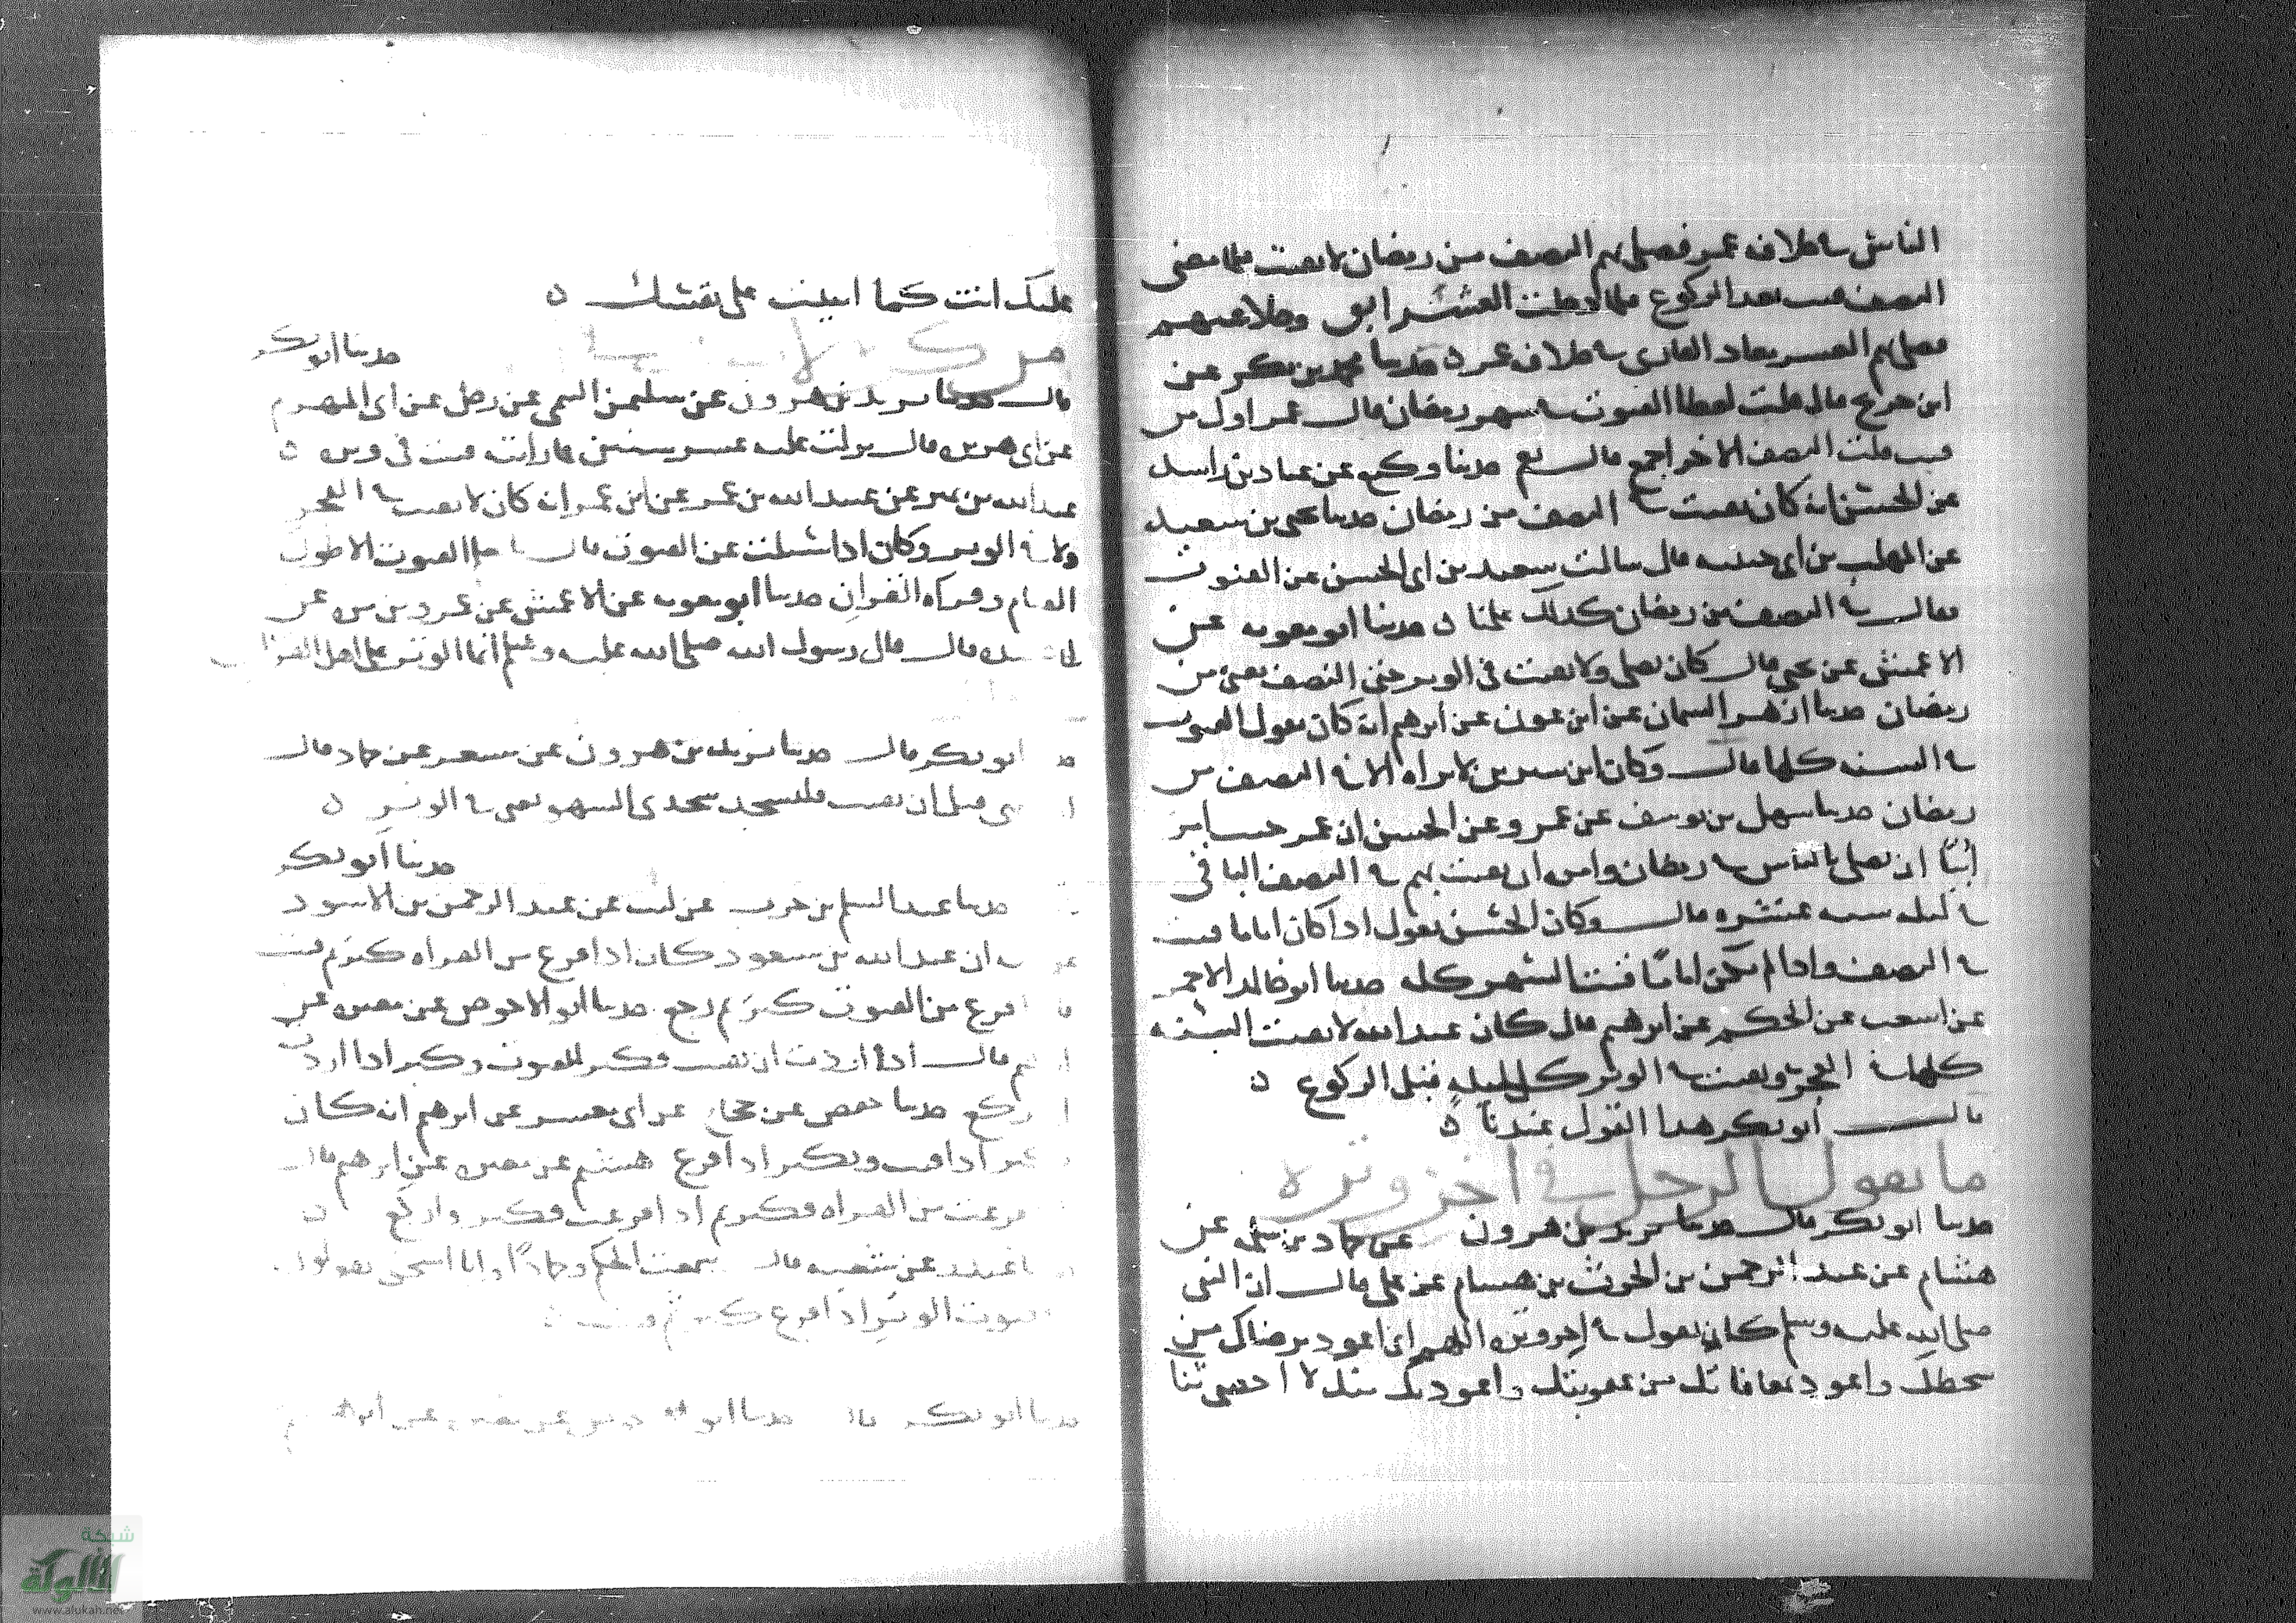 الناس في خلافة عمر فصلى بهم النصف من رمضان لا يقنت فلما مضى
النصف قنت بعد الركوع فلما دخلت العشر ابق وخلا عنهم
فصلى بهم العشر معاذ القاري في خلافة عمر ه حدثنا محمد بن بكر عن
ابن جريج قال قلت لعطا القنوت في شهر رمضان قال عمر اول من
قنت قلت النصف الاخر اجمع قال نعم حدثنا وكيع عن عباد بن راشد
عن الحسن انه كان يقنت في النصف من رمضان حدثنا يحيى بن سعيد
عن المهلب بن ابي حبيبه قال سالت سعيد بن ابي الحسن عن القنوت
فقال في النصف من رمضان كذلك علمنا ه حدثنا ابو معويه عن
الاعمش عن يحيى قال كان يصلي ولا يقنت في الوتر حتى النصف يعني من
رمضان حدثنا ازهر السمان عن ابن عون عن ابرهيم انه كان يقول القنوت
في السنه كلها قال وكان ابن سيرين لا يراه الا في النصف من
رمضان حدثنا سهل بن يوسف عن عمرو عن الحسن ان عمر حيث امر
أبيًا ان يصلي بالناس في رمضان وامره ان يقنت بهم في النصف الباقي
في ليله ست عشره قال وكان الحسن يقول اذا كان اماما قنت
في النصف واذا لم يكن اماما قنت الشهر كله حدثنا ابو خالد الاحمر
عن اشعث عن الحكم عن ابرهيم قال كان عبد الله لا يقنت السنه
كلها في الفجر ويقنت في الوتر كل ليله قبل الركوع ه
قال ابو بكر هذا القول عندنا ه
ما يقول الرجل في اخر وتره
حدثنا ابو بكر قال حدثنا يزيد بن هرون عن حماد بن سلمه عن
هشام عن عبد الرحمن بن الحرث بن هشام عن علي قال ان النبي
صلى الله عليه وسلم كان يقول في اخر وتره اللهم اني اعوذ برضاك من
سخطك واعوذ بمعافاتك من عقوبتك واعوذ بك منك لا احصي ثنا
عليك انت كما اثنيت على نفسك ه
حدثنا ابو بكر
قال حدثنا يزيد بن هرون عن سليمن التيمي عن رجل عن ابي المهزم
عن ابي هريره قال نزلت عليه عشر سنين فما رايته قنت في وتره ه
عبد الله بن نمير عن عبيد الله بن عمر عن ابن عمر انه كان لا يقنت في الفجر
ولا في الوتر وكان اذا سئلت عن القنوت قال ما نعلم القنوت الا طول
القيام وقراه القران حدثنا ابو معويه عن الاعمش عن عمرو بن مره عن
قال قال رسول الله صلى الله عليه وسلم انما الوتر على اهل القران
ابو بكر قال حدثنا يزيد بن هرون عن مسعر عن حماد قال
قبل ان يقنت فليسجد سجدتي السهو يعني في الوتر ه
حدثنا ابو بكر
حدثنا عبد السلم بن حرب عن ليث عن عبد الرحمن بن الاسود
ان عبد الله بن مسعود كان اذا فرغ من القراه كبر ثم قنت
فرغ من القنوت كبر ثم ركع حدثنا ابو الاحوص عن مغيره عن
قال اذا اردت ان تقنت فكبر للقنوت وكبر اذا اردت
تركع حدثنا حفص عن حجاج عن ابي معشر عن ابرهيم انه كان
يكبر اذا قنت ويكبر اذا فرغ هشيم عن مغيره عن ابرهيم قال
فرغت من القراه فكبر ثم اذا فرغت فكبر واركع ه
غندر عن شعبه قال سمعت الحكم وحمادًا وابا اسحق يقولون
قنوت الوتر اذا فرغ كبر ثم قنت ه
حدثنا ابو بكر قال حدثنا ابو